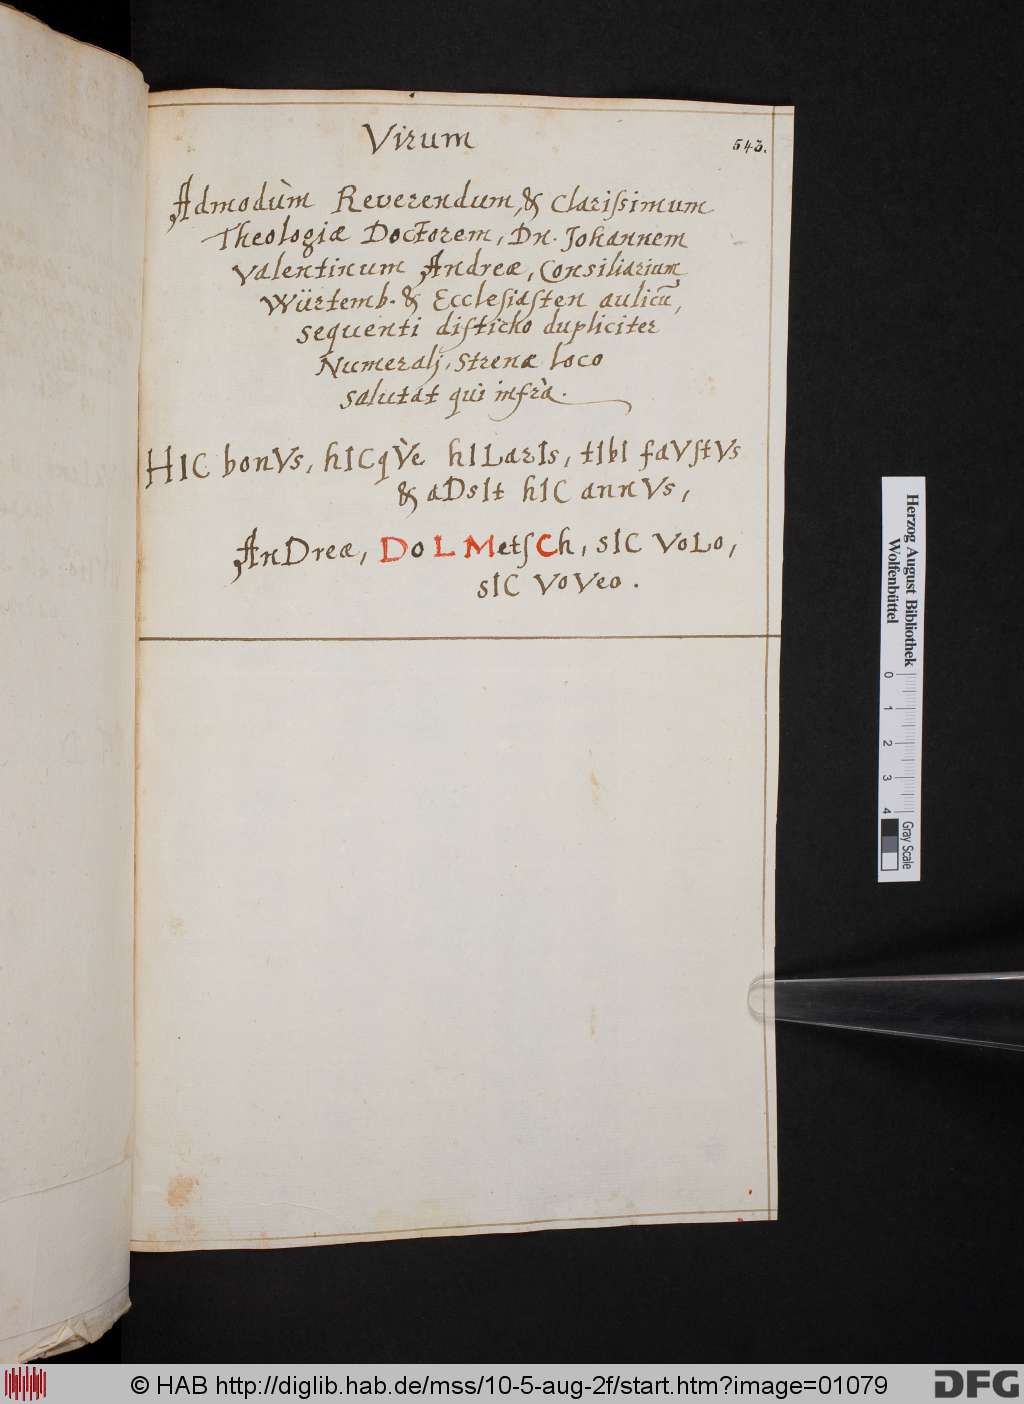 Virum
543.
Admodùm Reverendum, & Clariſsimum
Theologiæ Doctorem, Dn. Johannem
Valentinum Andreæ, Consiliarium
Würtemb. & Ecclesiaſten aulicũ,
sequenti diſticho dupliciter
Numerali, strenæ loco
salutat qui infrà.
HIC bonVs, hICqVè hILarIs, tIbI faVſtVs
& aDsIt hIC annVs,
AnDreæ, DoLMetſCh, sIC VoLo,
sIC VoVeo.
Herzog August Bibliothek
Wolfenbüttel
0 1 2 3 4
Gray Scale
© HAB http://diglib.hab.de/mss/10-5-aug-2f/start.htm?image=01079
DFG